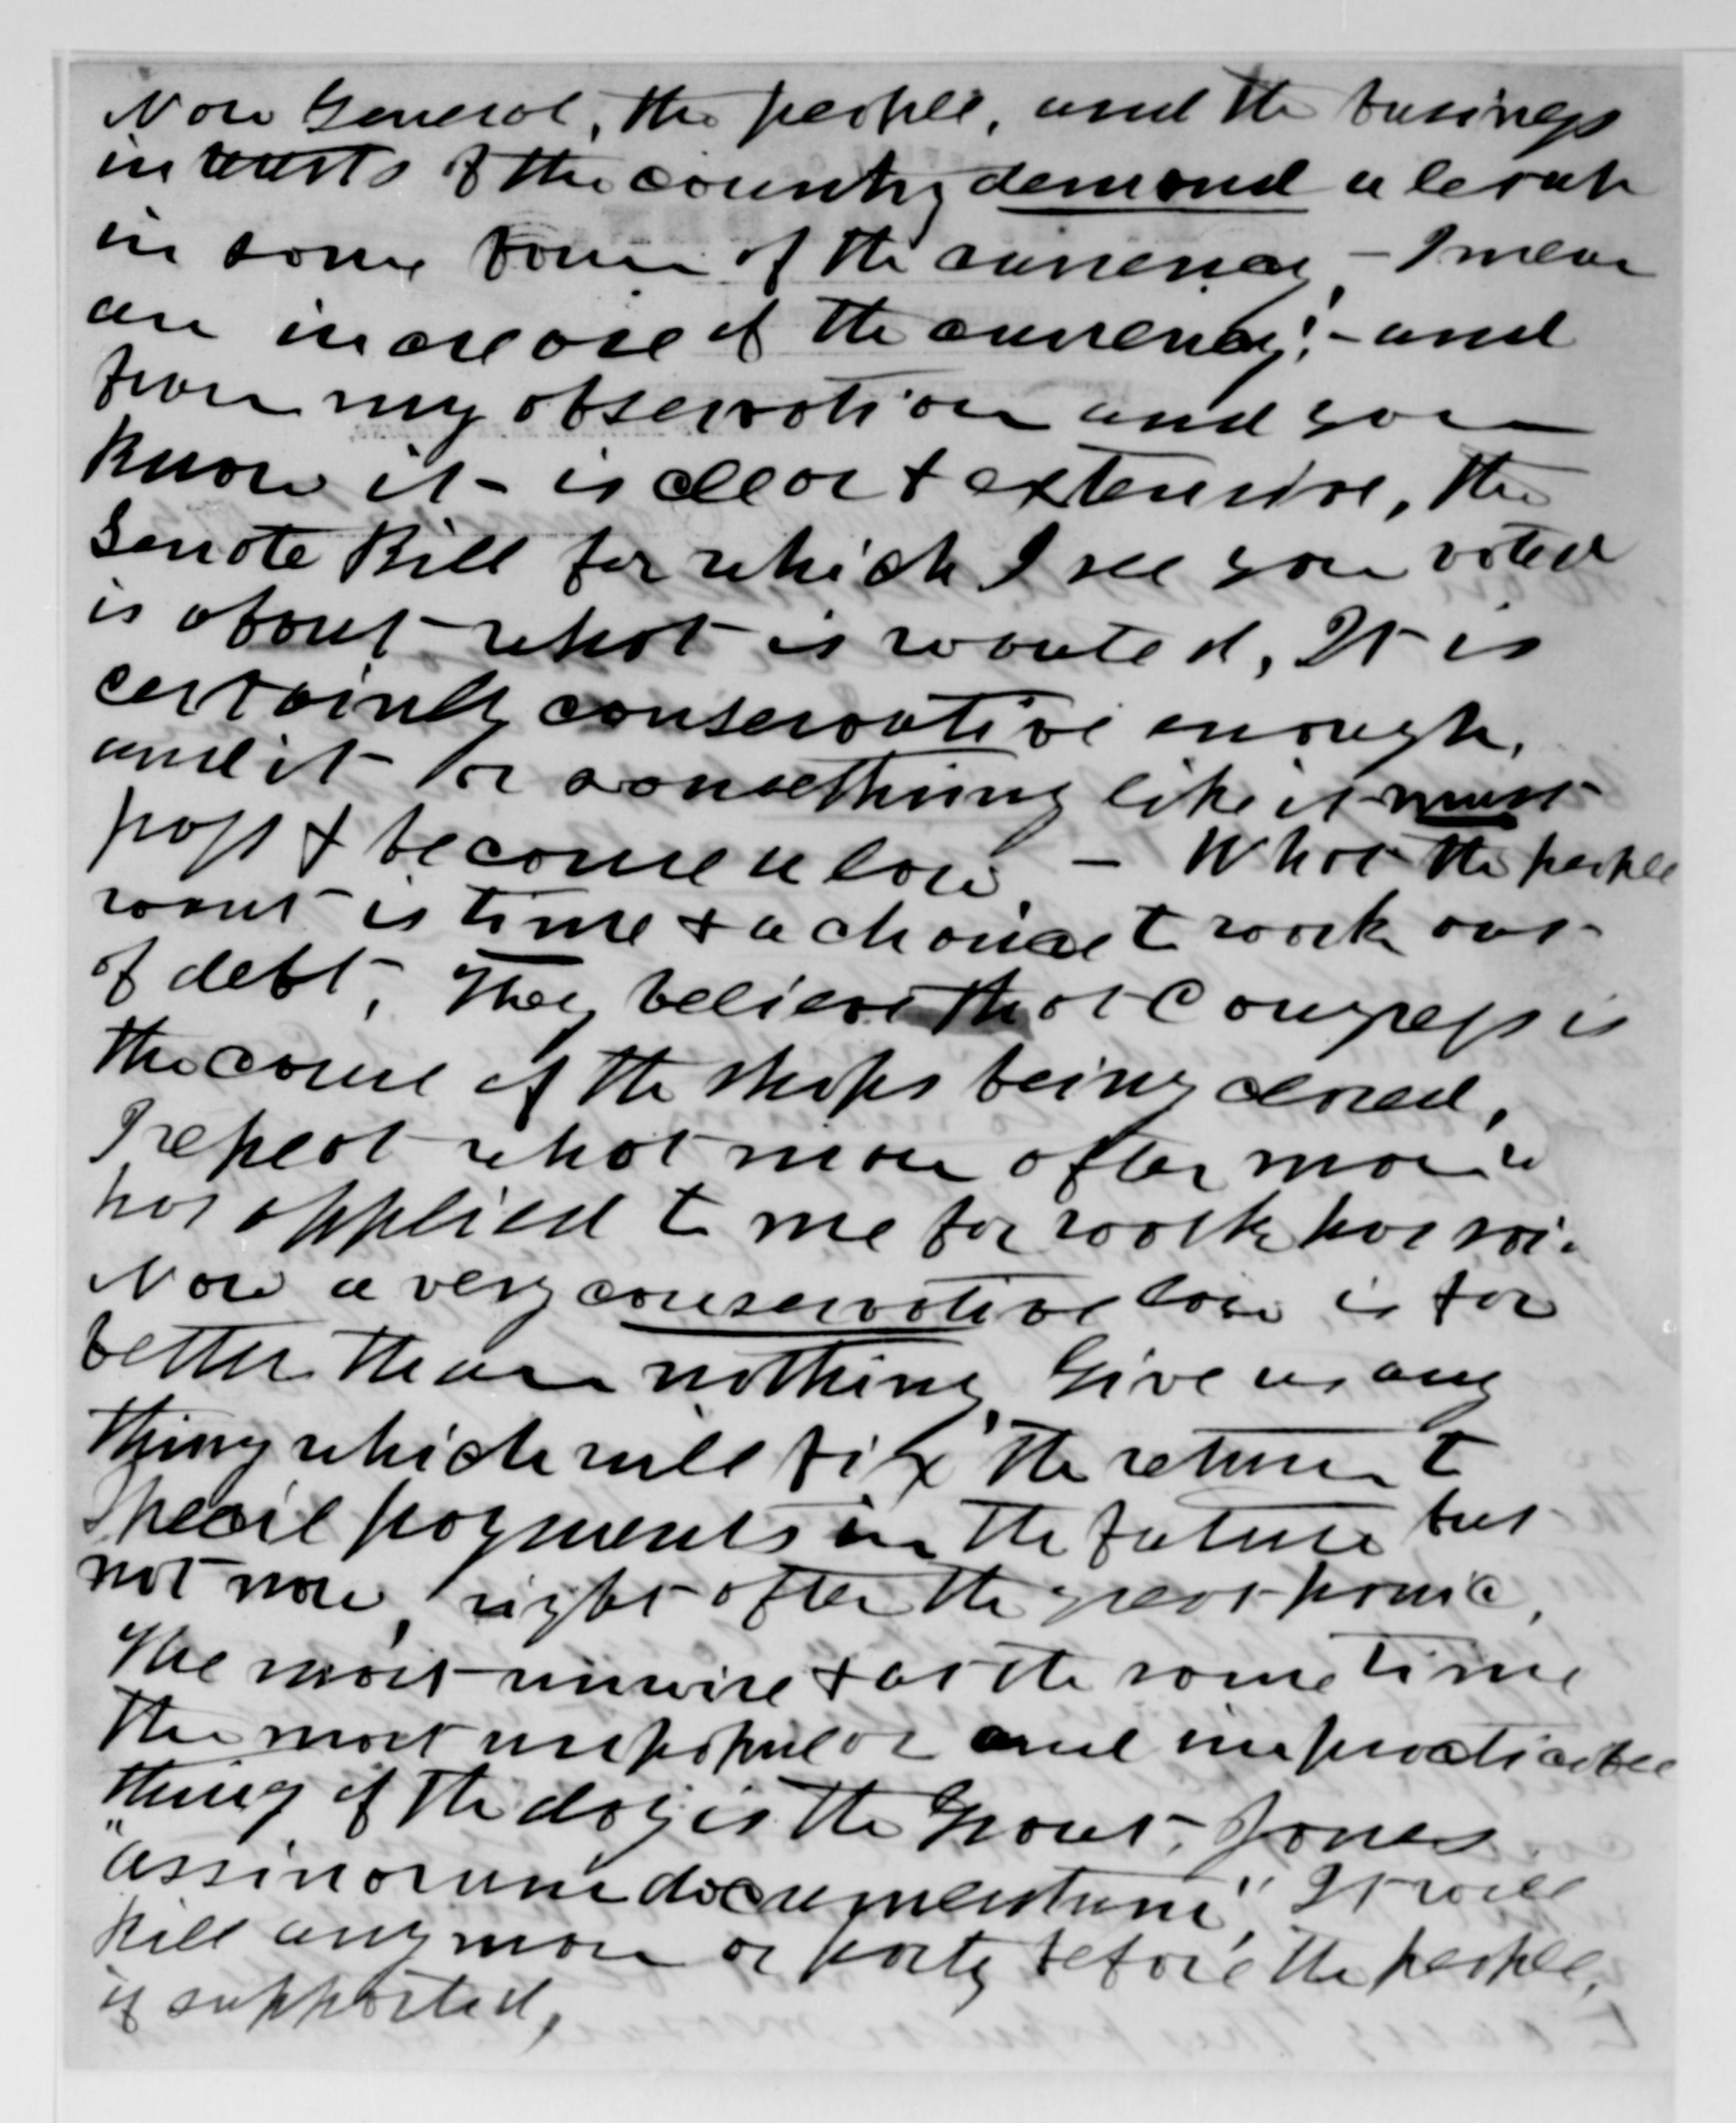 Now General, the people, and the business
interests of the country demand a levah
in some form of the currency, - I mean
an increase of the currency; - and
from my observation and you
know it - is clear & extensive, the
Senate Bill for which I see you voted
is about what is wanted, It is
certainly conservative enough,
and it or something like it must
pass & become a law, - What the people
want is time & a chance to work out
of debt, They believe that Congress is
the cause of the shops being closed,
I repeat what man after man who
has applied to me for work has said.
Now a very conservative law is far
better than nothing, Give us any
thing which will fix the return to
Specie payments in the future but
not now, right after the great panic,
The most unwise & at the same time
the most unpopular and impracticable
thing of the day is the Grant-Jones
"assinorum documentum", It will
kill any man or party before the people,
if supported,